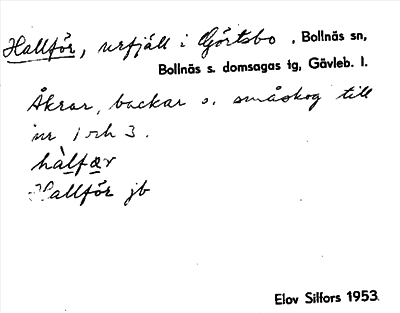 Hallför, urfjäll i Görtsbo . Bollnäs sn,
Bollnäs s. domsagas tg, Gävleb. l.
Åkrar, backar o. småskog till
nr 1 och 3.
hàlfær
Hallför jb
Elov Silfors 1953.